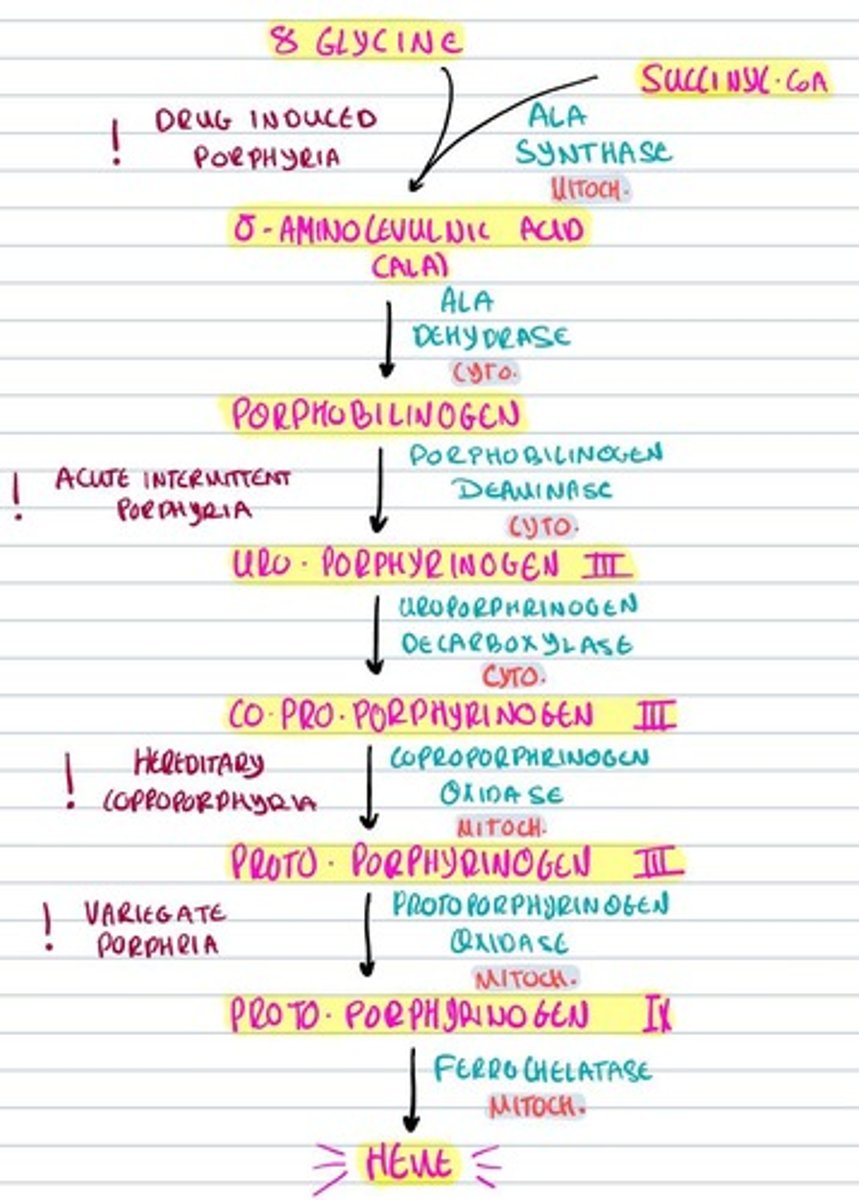 8 GLYCINE
SUCCINYL·COA
! DRUG INDUCED
PORPHYRIA
ALA
SYNTHASE
MITOCH.
δ-AMINOLEVULNIC ACID
(ALA)
ALA
DEHYDRASE
CYTO.
PORPHOBILINOGEN
! ACUTE INTERMITTENT
PORPHYRIA
PORPHOBILINOGEN
DEAMINASE
CYTO.
URO·PORPHYRINOGEN III
UROPORPHRINOGEN
DECARBOXYLASE
CYTO.
CO·PRO·PORPHYRINOGEN III
! HEREDITARY
COPROPORPHYRIA
COPROPORPHRINOGEN
OXIDASE
MITOCH.
PROTO·PORPHYRINOGEN III
! VARIEGATE
PORPHRIA
PROTOPORPHYRINOGEN
OXIDASE
MITOCH.
PROTO·PORPHYRINOGEN IX
FERROCHELATASE
MITOCH.
HEME